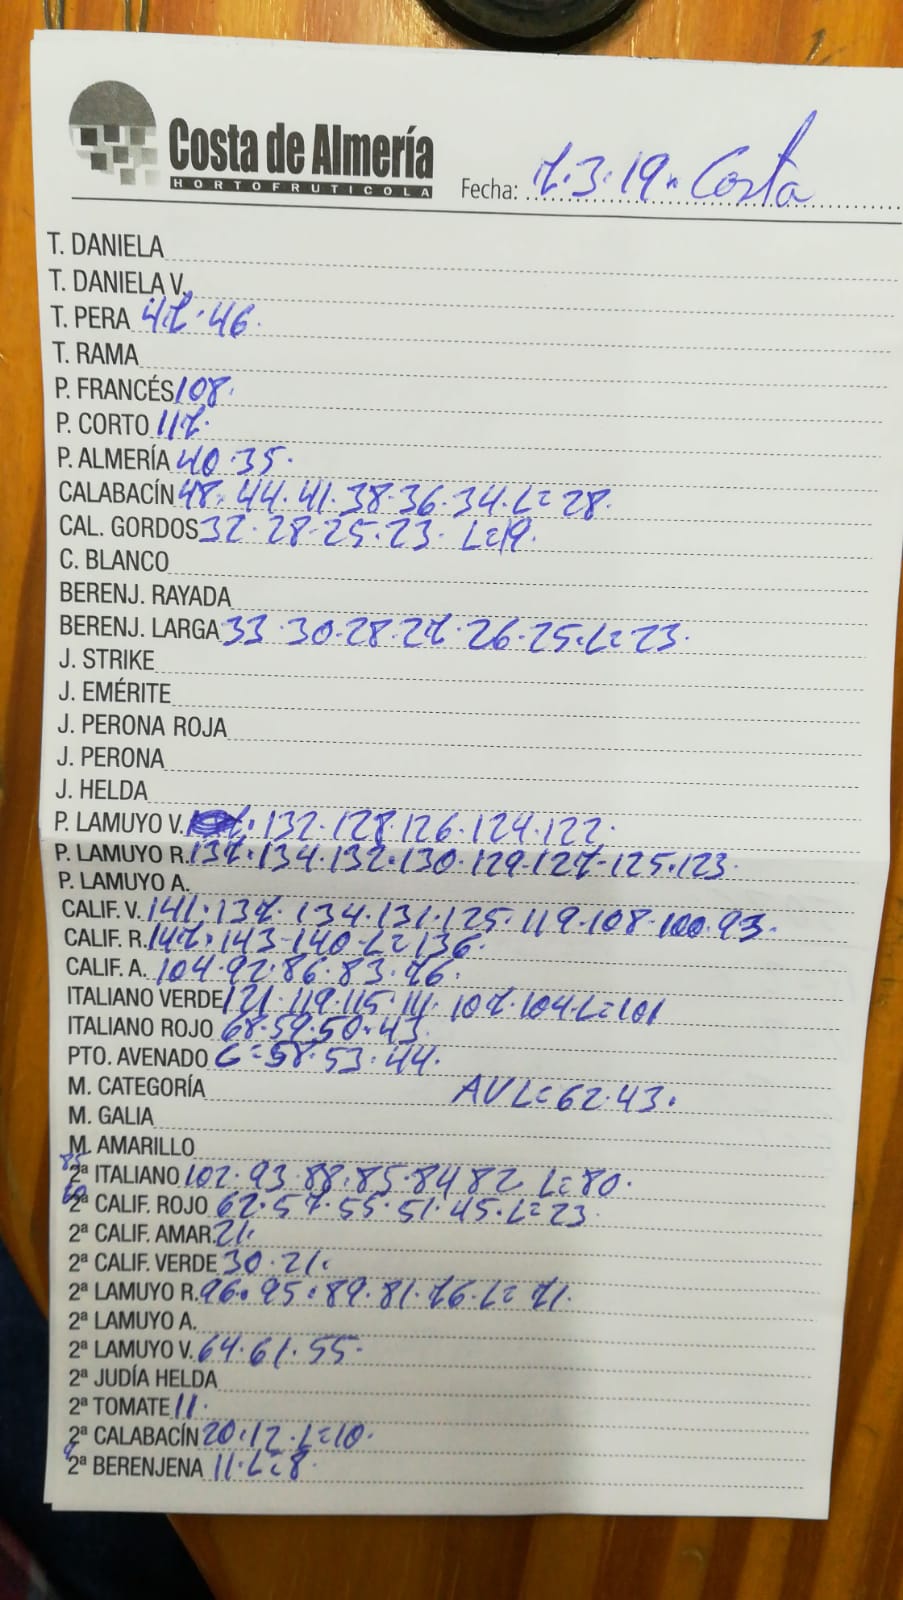 Costa de Almería
HORTOFRUTICOLA
Fecha: 7.3.19. Costa
T. DANIELA
T. DANIELA V.
T. PERA 47.46.
T. RAMA
P. FRANCÉS 108.
P. CORTO 117.
P. ALMERÍA 40.35.
CALABACÍN 48.44.41.38.36.34.L=28.
CAL. GORDOS 32.28.25.23. L=19.
C. BLANCO
BERENJ. RAYADA
BERENJ. LARGA 33.30.28.27.26.25.L=23.
J. STRIKE
J. EMÉRITE
J. PERONA ROJA
J. PERONA
J. HELDA
P. LAMUYO V. 132.128.126.124.122.
P. LAMUYO R. 137.134.132.130.129.127.125.123.
P. LAMUYO A.
CALIF. V. 141.137.134.131.125.119.108.100.93.
CALIF. R. 147.143-140-L=136.
CALIF. A. 104.92.86.83.76.
ITALIANO VERDE 121.119.115.111.107.104.L=101
ITALIANO ROJO 68.59.50.43.
PTO. AVENADO G=58.53.44.
M. CATEGORÍA AV L=62.43.
M. GALIA
M. AMARILLO
85
2ª ITALIANO 102.93.88.85.84 82 L=80.
60
2ª CALIF. ROJO 62.57.55.51.45.L=23
2ª CALIF. AMAR. 21.
2ª CALIF. VERDE 30.21.
2ª LAMUYO R. 96.95.89.81.76.L=71.
2ª LAMUYO A.
2ª LAMUYO V. 64.61.55.
2ª JUDÍA HELDA
2ª TOMATE 11.
2ª CALABACÍN 20.12.L=10.
2ª BERENJENA 11.L=8.